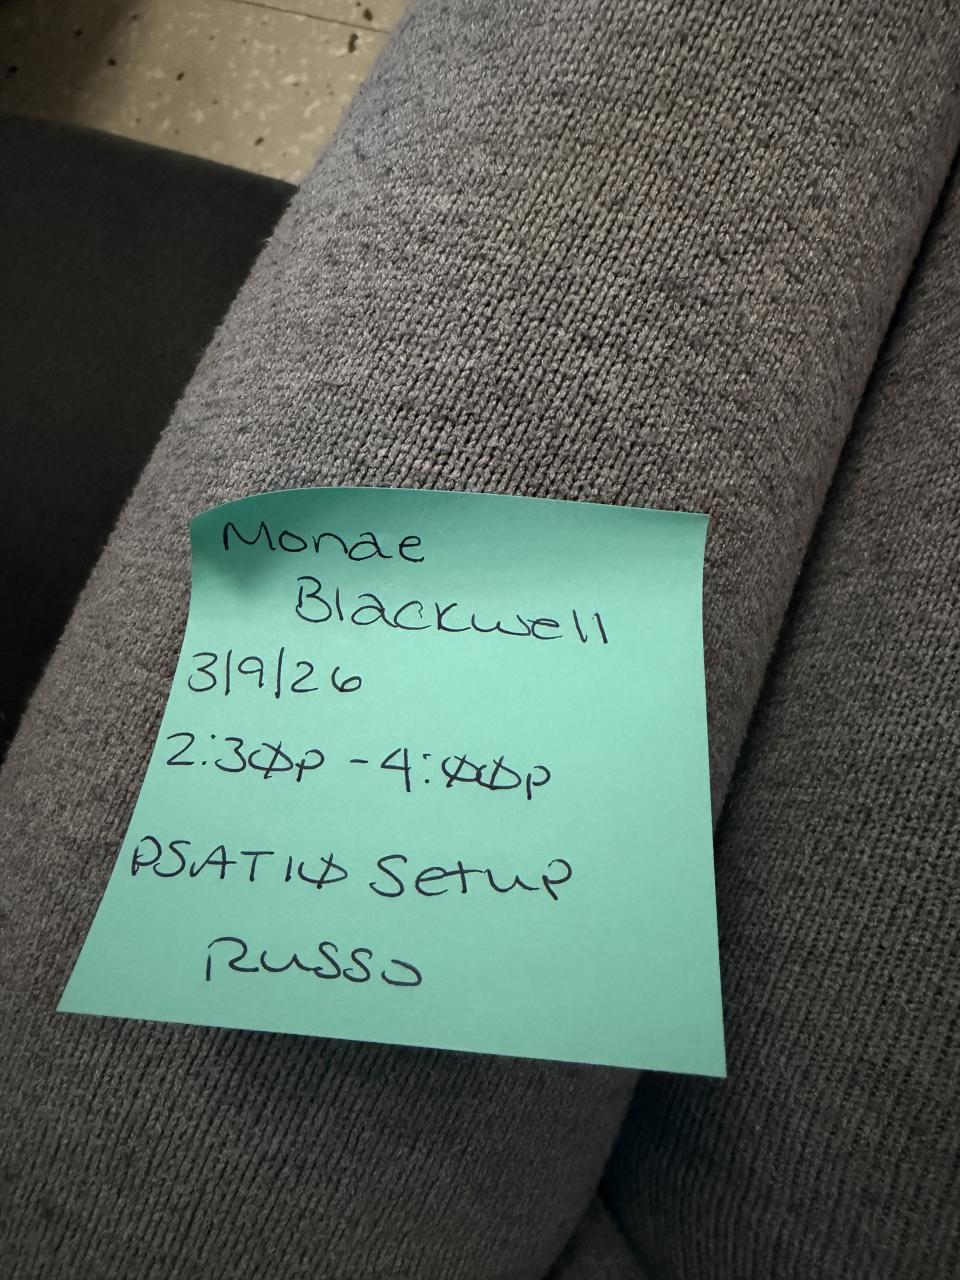 Monae
Blackwell
3/9/26
2:30p - 4:00p
PSAT10 Setup
Russo